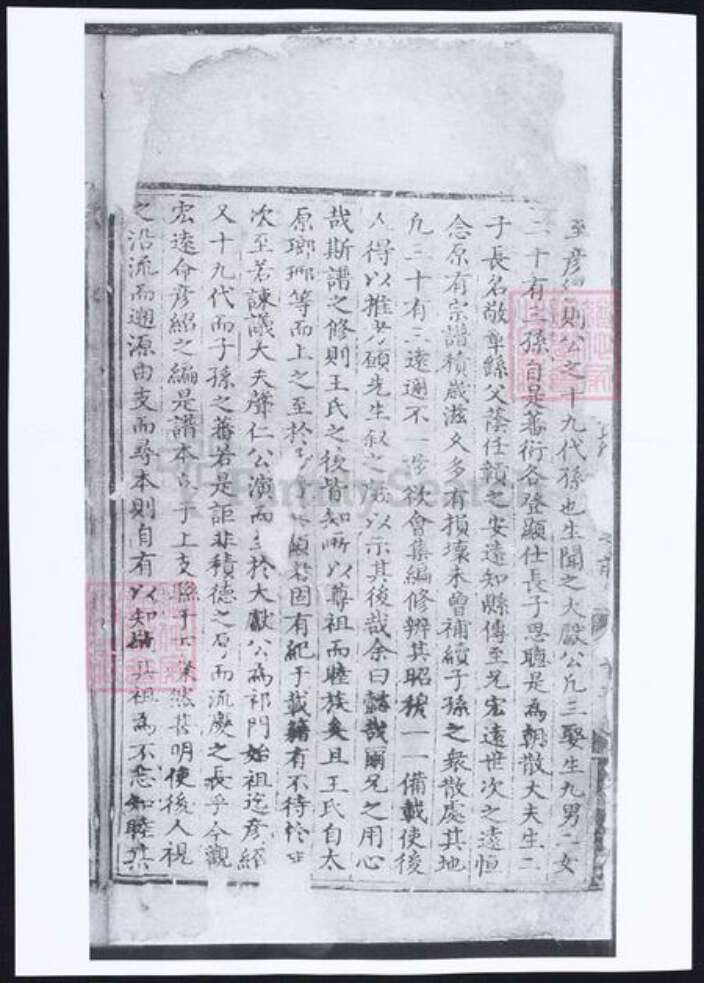 至彦則公之十九代孫也生聞之大獻公凡三娶生九男二女
二十有三孫自是蕃衍各登顯仕長子思聰是為朝散大夫生二
子長名敞章縣父蔭任贛之安遠知縣傳至兄宏遠世次之遠恒
念原有宗譜積歲滋久多有損壞未曾補續子孫之衆散處其地
凡三十有三遠邇不一欲會集編修辨其昭穆一一備載使後
人得以推考願先生叙之以示其後哉余曰哉爾兄之用心
哉斯譜之修則王氏之後皆知所以尊祖而睦族矣且王氏自太
原瑯琊等而上之至於固有紀于載籍有不待於
次至若諫議大夫聲仁公演而於大獻公為祁門始祖迄彦經
又十九代而子孫之蕃若是詎非積德之厚而流慶之長乎今觀
宏遠命彦紹之編是譜本于上支于然甚明使後人視
之沿流而遡源由支而尋本則自有以知其祖為不忘知睦其
FamilySearch